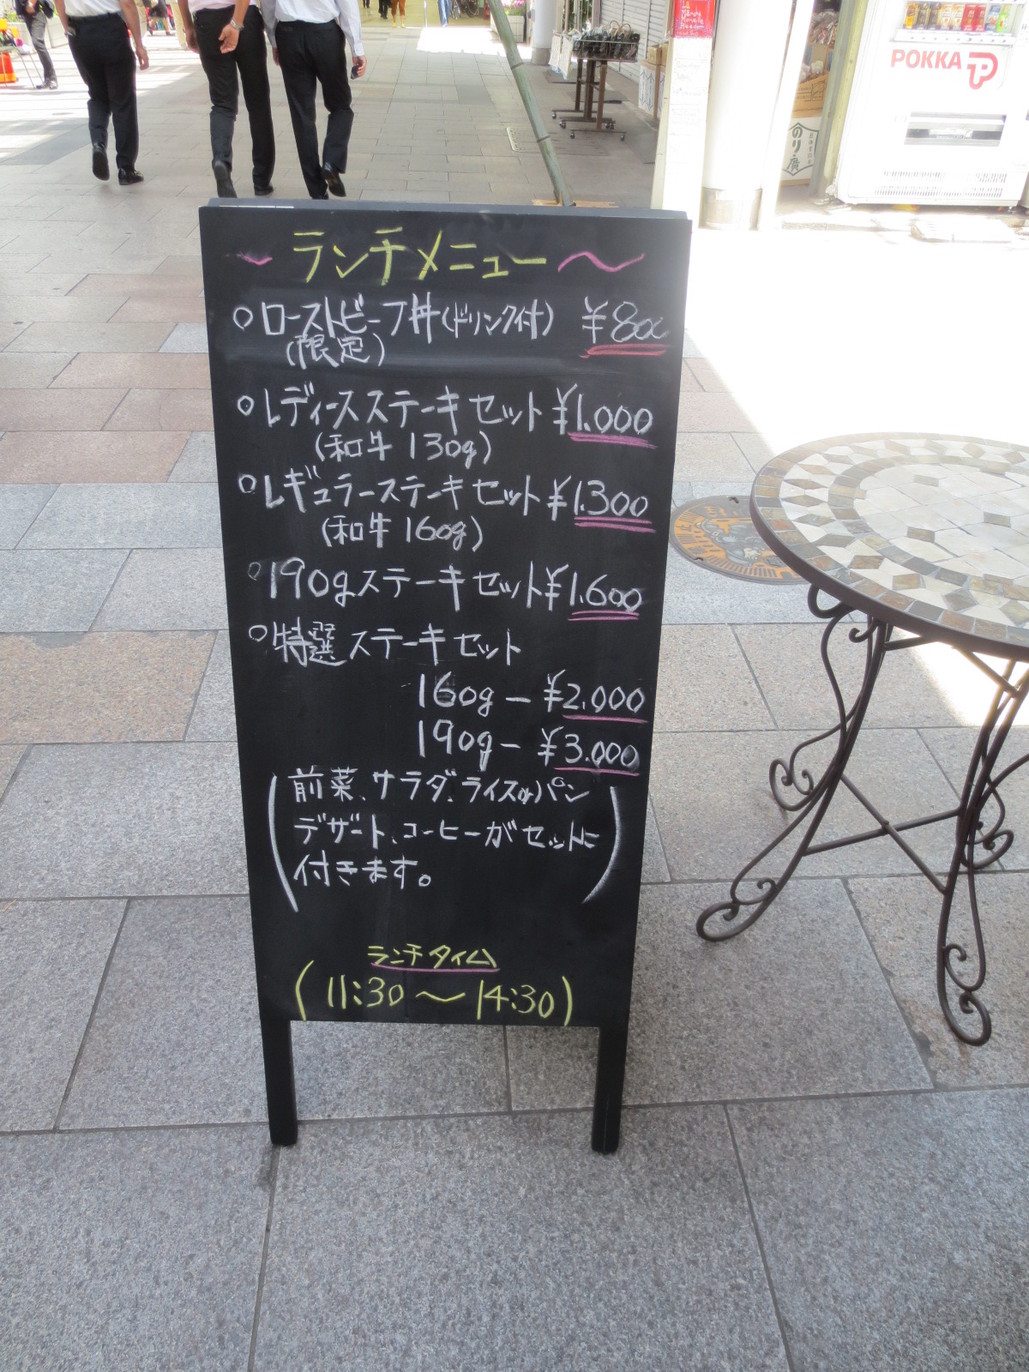 POKKA
のり庵
ランチメニュー
ローストビーフ丼(ドリンク付) ¥800
(限定)
レディースステーキセット ¥1.000
(和牛 130g)
レギュラーステーキセット ¥1.300
(和牛 160g)
190gステーキセット ¥1.600
特選ステーキセット
160g — ¥2.000
190g — ¥3.000
(前菜、サラダ、ライスorパン
デザート、コーヒーがセットに
付きます。)
ランチタイム
(11:30〜14:30)